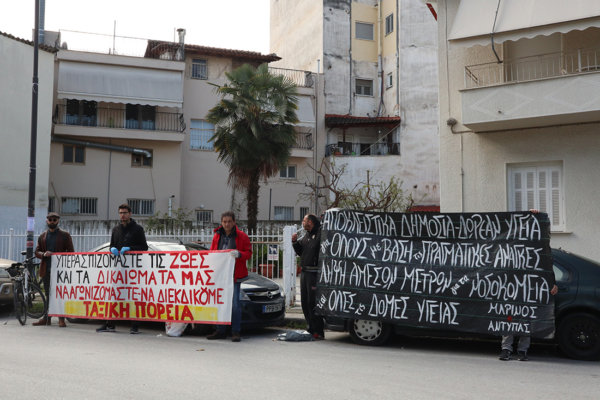 ΥΠΕΡΑΣΠΙΖΟΜΑΣΤΕ ΤΙΣ ΖΩΕΣ
ΚΑΙ ΤΑ ΔΙΚΑΙΩΜΑΤΑ ΜΑΣ
ΝΑ ΑΓΩΝΙΖΟΜΑΣΤΕ ΝΑ ΔΙΕΚΔΙΚΟΥΜΕ
ΤΑΞΙΚΗ ΠΟΡΕΙΑ
ΑΠΟΚΛΕΙΣΤΙΚΑ ΔΗΜΟΣΙΑ-ΔΩΡΕΑΝ ΥΓΕΙΑ
ΓΙΑ ΟΛΟΥΣ ΜΕ ΒΑΣΗ ΤΙΣ ΠΡΑΓΜΑΤΙΚΕΣ ΑΝΑΓΚΕΣ
ΛΗΨΗ ΑΜΕΣΩΝ ΜΕΤΡΩΝ ΓΙΑ ΤΑ ΝΟΣΟΚΟΜΕΙΑ
ΚΑΙ ΟΛΕΣ ΤΙΣ ΔΟΜΕΣ ΥΓΕΙΑΣ
ΜΑΡΙΝΟΣ
ΑΝΤΥΠΑΣ